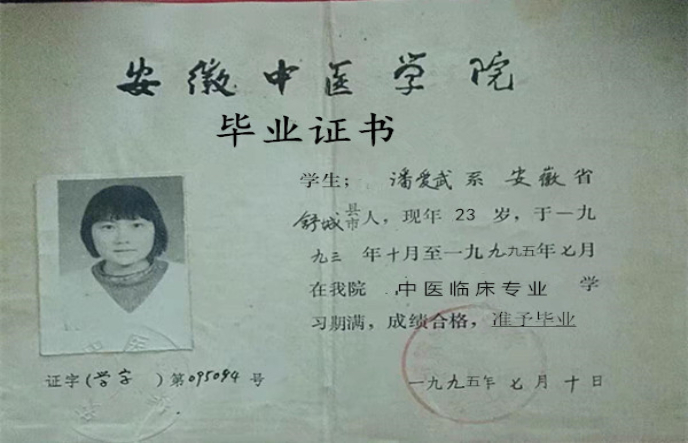 安徽中医学院
毕业证书
学生；潘爱武系安徽省
舒城县市人，现年23岁，于一九
九三年十月至一九九九五年七月
在我院中医临床专业学
习期满，成绩合格，准予毕业
证字(学字)第095094号
一九九五年七月十日